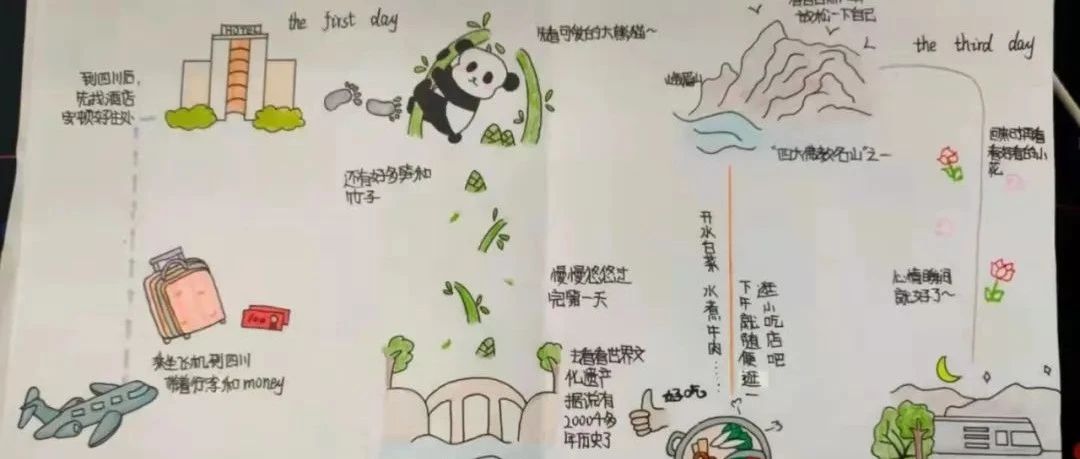 HOTEL
the first day
到四川后,
先找酒店
安顿好住处
乘坐飞机到四川
带着行李和money
先看可爱的大熊猫~
还有好多笋和
竹子
慢慢悠悠过
完第一天
去看看世界文
化遗产
据说有
年历史了
放松一下自己
峨眉山
"四大佛教名山"之一
下午就随便逛一
逛小吃店吧
开水白菜
水煮牛肉……
好吃
the third day
看好看的小
花
心情瞬间
就好了~